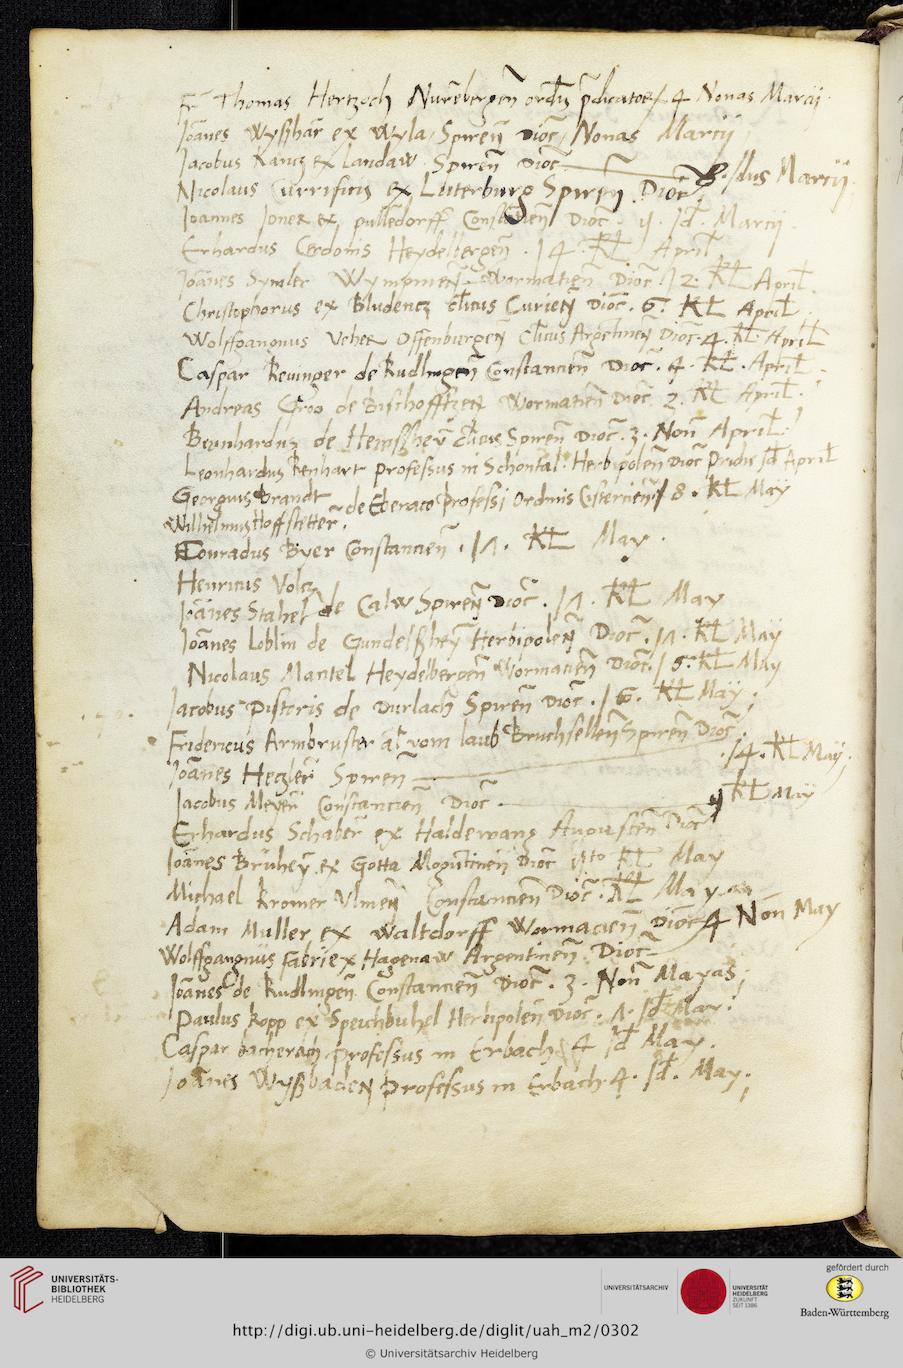 Fr Thomas Hertzoch Nurēbergeñ ordīs p̄dicatorꝝ 4 Nonas Marcij
Joānes Wyßhar ex Wyla Spireñ Dioc̄ Nonas Marcij
Jacobus Kantz ex Landaw Spireñ Dioc̄
Nicolaus Currificis ex Luterburg Spireñ Dioc̄ 8 Idus Marcij
Joannes Joner ex pullēdorff Constācieñ Dioc̄ . ij . Id . Marcij
Erhardus Cerdonis Heydelbergeñ . 14 . KL April
Joānes Symler Wympineñ Wormatieñ Dioc̄ 12 KL April
Christophorus ex Bludentz cl̄icus Curieñ Dioc̄ . 6 . KL April
Wolffgangus Veher Offenburgeñ Cl̄icus Argentineñ Dioc̄ . 4 . KL April
Caspar Revinger de Rudlingeñ Constancieñ Dioc̄ . 4 . KL . April
Andreas Groo de Bischoffzen Wormatieñ Dioc̄ . 2 . KL April
Bernhardus de Hemßhey cl̄icus Spireñ Dioc̄ . 3 . Non̄ April
Leonhardus Renhart professus in Schontal . Herbipoleñ Dioc̄ Pridie Id April
Georgius Brandt
Wilhelmus Hoffstetter de Eberaco professi ordinis Cistercieñ 18 . KL May
Conradus Byer Constancieñ . 17 . KL May .
Henricus Voltz
Joānes Stahel de Calw Spireñ Dioc̄ . 17 . KL May
Joānes Loblin de Gundelßhey Herbipoleñ Dioc̄ . 17 . KL May
Nicolaus Mantel Heydelbergeñ Wormacieñ Dioc̄ . 16 . KL May
Jacobus Pistoris de Durlach Spireñ Dioc̄ . 16 . KL May
Fridericus Armbruster al̄ vom laub Bruchselleñ Spireñ Dioc̄
. 14 . KL May
Joānes Heczler Spireñ
Jacobus Meyer Constancieñ Dioc̄ KL May
Erhardus Schaber ex Haldewang Augusteñ Dioc̄
Joānes Bruhey ex Gotta Mogūtineñ Dioc̄ KL May
Michael Kromer Vlmeñ Constancieñ Dioc̄ . KL May
Adam Muller ex Waltdorff Wormacieñ Dioc̄ 4 Non May
Wolffgangus Fabri ex Hagenaw Argentineñ Dioc̄
Joānes de Rudlingeñ Constancieñ Dioc̄ . 3 . Non̄ Mayas
Paulus Kopp ex Speichbuhel Herbipoleñ Dioc̄ . 7 . Id May
Caspar bacherach professus in Erbach 4 Id May .
Joānes Wyßbaden professus in Erbach 4 . Id . May
UNIVERSITÄTS-
BIBLIOTHEK
HEIDELBERG
UNIVERSITÄTSARCHIV
UNIVERSITÄT
HEIDELBERG
ZUKUNFT
SEIT 1386
gefördert durch
Baden-Württemberg
http://digi.ub.uni-heidelberg.de/diglit/uah_m2/0302
© Universitätsarchiv Heidelberg